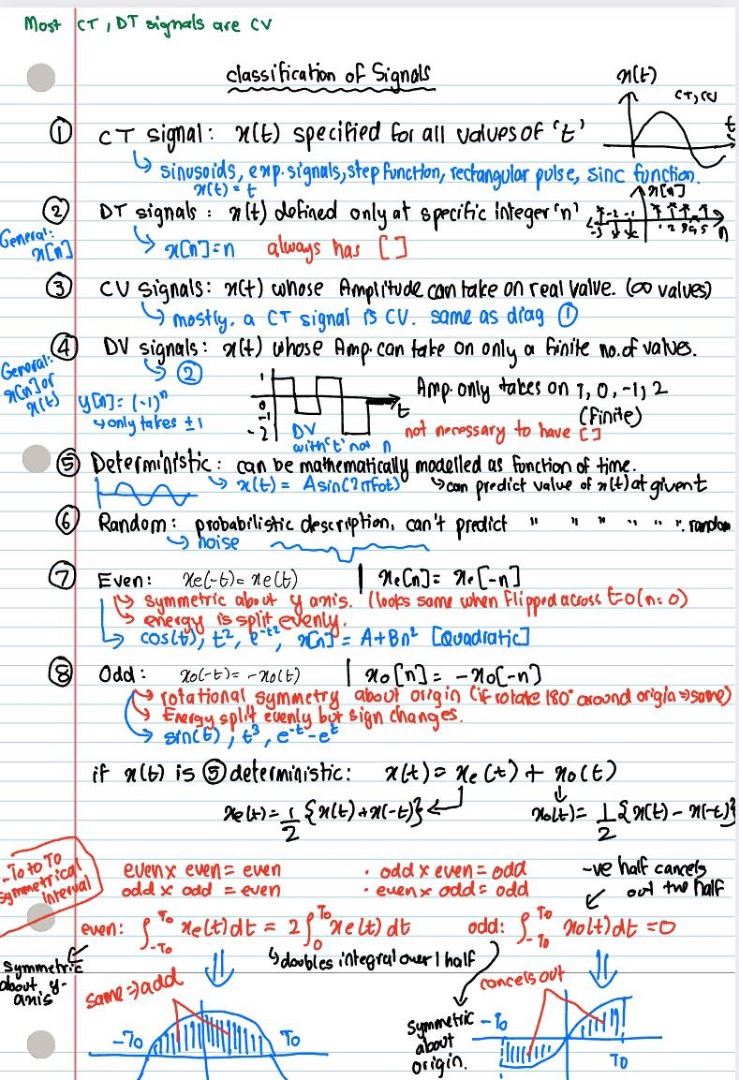 Most CT, DT signals are CV
classification of Signals
x(t)
CT, CV
t
① CT signal: x(t) specified for all values of 't'
↳ sinusoids, exp. signals, step function, rectangular pulse, sinc function.
x(t) = t
x[n]
② DT signals: x(t) defined only at specific integer 'n'
-3 -2 -1 1 2 3 4 5 n
General: x[n]
↳ x[n]=n always has []
③ CV signals: x(t) whose Amplitude can take on real value. (∞ values)
↳ mostly, a CT signal is CV. same as diag ①
④ DV signals: x(t) whose Amp. can take on only a finite no. of values.
General: x[n] or x(t)
↳ ②
y[n] = (-1)ⁿ
↳ only takes ±1
1
0
-1
-2
t
DV with 't' not n
Amp. only takes on 1, 0, -1, 2
(finite)
not necessary to have []
⑤ Deterministic: can be mathematically modelled as function of time.
↳ x(t) = Asin(2πfot) ↳ can predict value of x(t) at given t
⑥ Random: probabilistic description, can't predict " " " " " ". random
↳ noise
⑦ Even: xe(-t) = xe(t) | xe[n] = xe[-n]
↳ symmetric about y axis. (looks same when flipped across t=0 (n=0)
↳ energy is split evenly.
↳ cos(t), t², e^-t², x[n] = A+Bn² [Quadratic]
⑧ Odd: xo(-t) = -xo(t) | xo[n] = -xo[-n]
↳ rotational symmetry about origin (if rotate 180° around origin ⇒ same)
↳ Energy split evenly but sign changes.
↳ sin(t), t³, e^-t - e^t
if x(t) is ⑤ deterministic: x(t) = xe(t) + xo(t)
xe(t) = 1/2 {x(t) + x(-t)} xo(t) = 1/2 {x(t) - x(-t)}
-To to To
symmetrical
Interval
even x even = even · odd x even = odd
odd x odd = even · even x odd = odd
-ve half cancels
out +ve half
even: ∫-To^To xe(t)dt = 2∫0^To xe(t)dt odd: ∫-To^To xo(t)dt = 0
↳ doubles integral over 1 half
symmetric
about y-
axis
same ⇒ add
cancels out
Symmetric
about
origin.
-To To
-To To